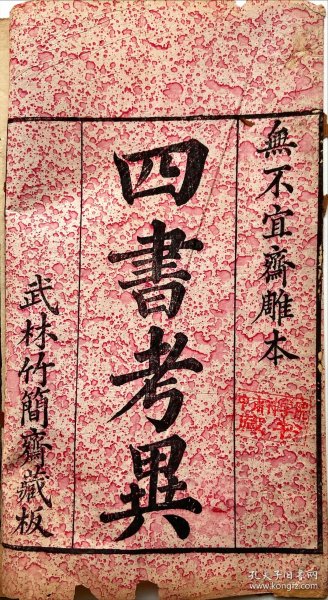 無不宜齋雕本
四書考異
武林竹簡齋藏板
孔夫子旧书网
www.kongfz.com